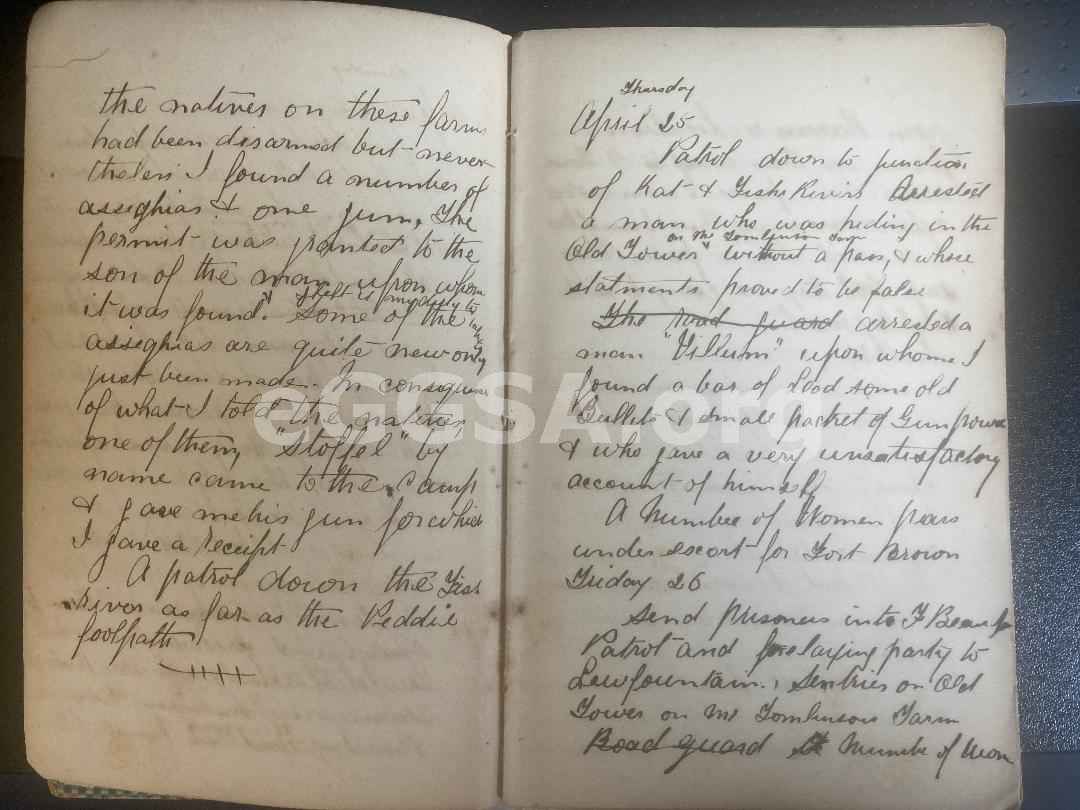 the natives on these farms
had been disarmed but never
theless I found a number of
asseghias & one gun, The
permit was granted to the
son of the man upon whom
I felt it my duty to
it was found. Some of the
assighias are quite new only
just been made. In consequence
of what I told the natives
one of them, "Stoffel" by
name came to the camp
& gave me his gun for which
I gave a receipt
A patrol down the Fish
river as far as the Peddie
footpath
Thursday
April 25
Patrol down to junction
of Kat & Fish Rivers Arrested
a man who was hiding in the
on Mr Tomlinson Farm
Old Tower without a pass, & whose
statments proved to be false
The road guard arrested a
man "Villum" upon whom I
found a bar of Lead some old
Bullets & small packet of Gun powder
& who gave a very unsatisfactory
account of himself
A Number of Women pass
under escort for Fort Brown
Friday 26
Send prisoners into F Beaufort
Patrol and forelaying party to
Leewfountain., Sentries on Old
Tower on Mr Tomlinsons Farm
Road guard Numbe of Wom
eGGSA.org